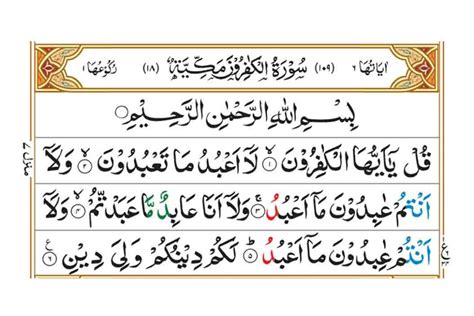 اٰيَاتُهَا ٦ (١٠٩) سُوْرَةُ الْكٰفِرُوْنَ مَكِّيَّةٌ (١٨) رُكُوْعُهَا ١
بِسْمِ اللّٰهِ الرَّحْمٰنِ الرَّحِيْمِ
قُلْ يٰۤاَيُّهَا الْكٰفِرُوْنَ ۙ﴿١﴾ لَاۤ اَعْبُدُ مَا تَعْبُدُوْنَ ۙ﴿٢﴾ وَلَاۤ
اَنْتُمْ عٰبِدُوْنَ مَاۤ اَعْبُدُ ۚ﴿٣﴾ وَلَاۤ اَنَا عَابِدٌ مَّا عَبَدْتُّمْ ۙ﴿٤﴾ وَلَاۤ
اَنْتُمْ عٰبِدُوْنَ مَاۤ اَعْبُدُ ؕ﴿٥﴾ لَكُمْ دِيْنُكُمْ وَلِيَ دِيْنِ ﴿٦﴾
منزل ٧